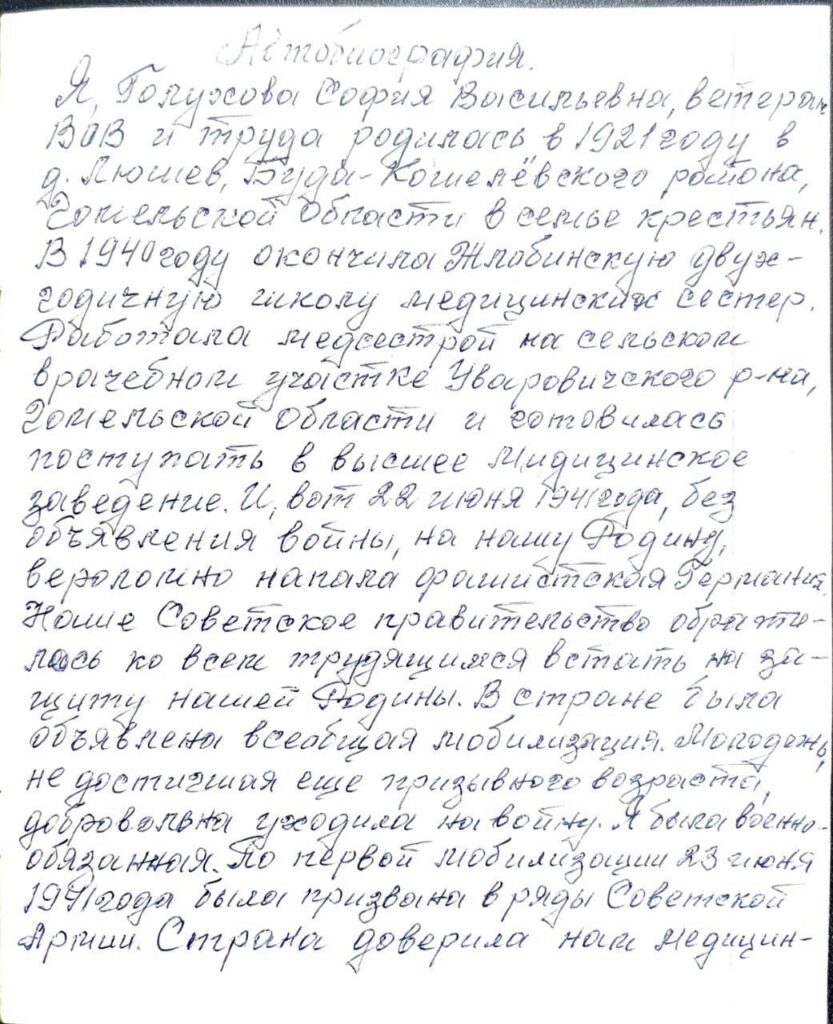 Автобиография.
Я, Голухова София Васильевна, ветеран
ВОВ и труда родилась в 1921 году в
д. Люшев, Буда-Кошелёвского района,
Гомельской области в семье крестьян.
В 1940 году окончила Жлобинскую двух-
годичную школу медицинских сестер.
Работала медсестрой на сельском
врачебном участке Уваровичского р-на,
Гомельской области и готовилась
поступать в высшее мидицинское
заведение. И, вот 22 июня 1941 года, без
объявления войны, на нашу Родину,
вероломно напала фашистская Германия.
Наше Советское правительство обрати-
лось ко всем трудящимся встать на за-
щиту нашей Родины. В стране была
объявлена всеобщая мобилизация. Молодежь,
не достигшая еще призывного возраста,
добровольна уходила на войну. Я была военно-
обязанная. По первой мобилизации 23 июня
1941 года была призвана в ряды Советской
Армии. Страна доверила нам медицин-